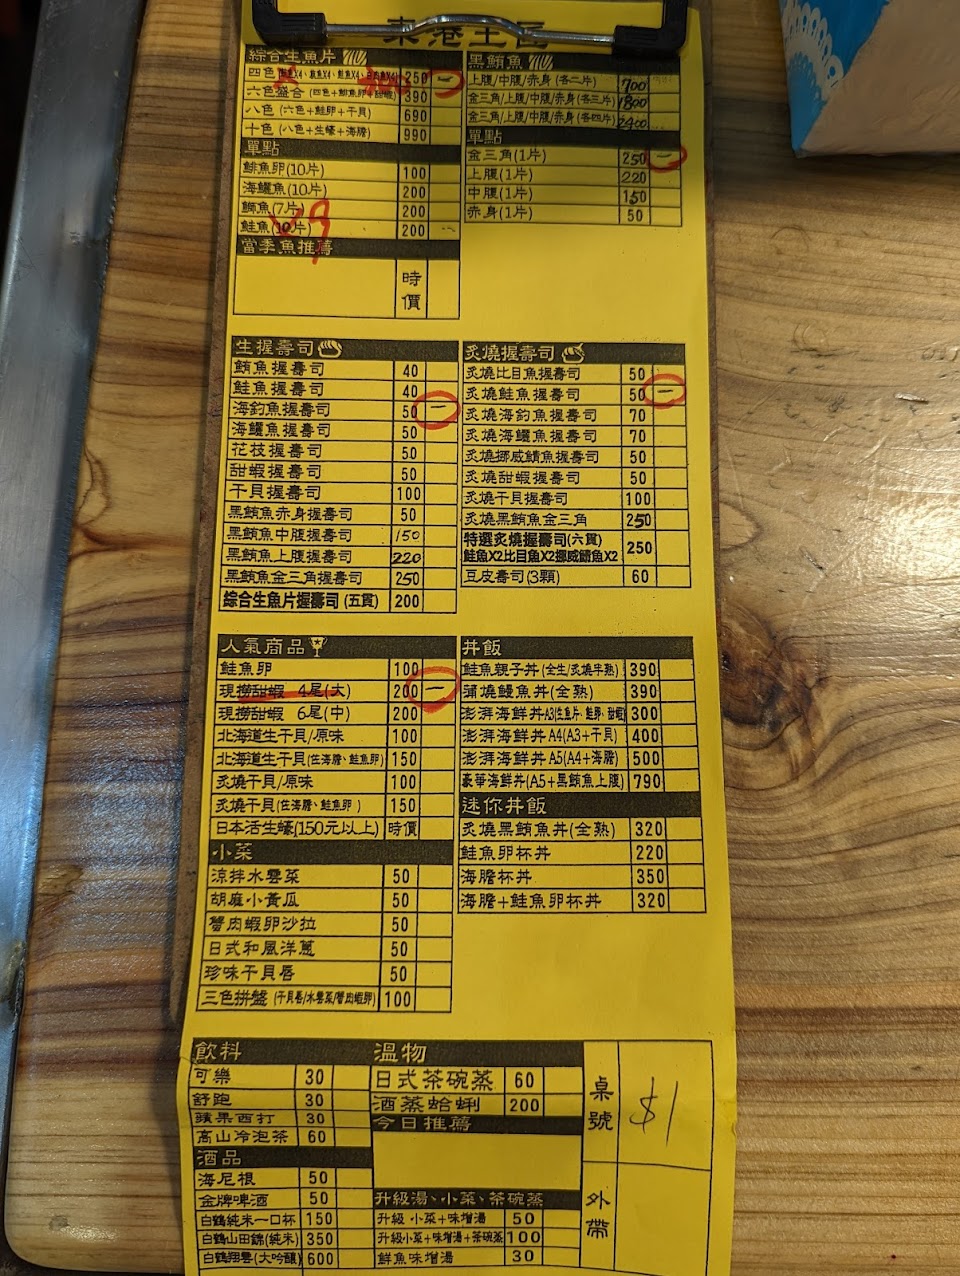 綜合生魚片
四色 250 一
六色綜合 (四色+鮭魚卵+甜蝦) 390
八色 (六色+鮭卵+干貝) 690
十色 (八色+生蠔+海膽) 990
單點
鮭魚卵(10片) 100
海鱺魚(10片) 200
鰤魚(7片) 200
鮭魚(10片) 200
當季魚推薦
時價
黑鮪魚
上腹/中腹/赤身(各二片) 700
金三角/上腹/中腹/赤身(各三片) 1800
金三角/上腹/中腹/赤身(各四片) 2400
單點
金三角(1片) 250 一
上腹(1片) 220
中腹(1片) 150
赤身(1片) 50
生握壽司
鮪魚握壽司 40
鮭魚握壽司 40
海釣魚握壽司 50 一
海鱺魚握壽司 50
花枝握壽司 50
甜蝦握壽司 50
干貝握壽司 100
黑鮪魚赤身握壽司 50
黑鮪魚中腹握壽司 150
黑鮪魚上腹握壽司 220
黑鮪魚金三角握壽司 250
綜合生魚片握壽司(五貫) 200
炙燒握壽司
炙燒比目魚握壽司 50
炙燒鮭魚握壽司 50 一
炙燒海釣魚握壽司 70
炙燒海鱺魚握壽司 70
炙燒挪威鯖魚握壽司 50
炙燒甜蝦握壽司 50
炙燒干貝握壽司 100
炙燒黑鮪魚金三角 250
特選炙燒握壽司(六貫)
鮭魚X2比目魚X2挪威鯖魚X2 250
豆皮壽司(3顆) 60
人氣商品
鮭魚卵 100
現撈甜蝦 4尾(大) 200 一
現撈甜蝦 6尾(中) 200
北海道生干貝/原味 100
北海道生干貝(佐海膽、鮭魚卵) 150
炙燒干貝/原味 100
炙燒干貝(佐海膽、鮭魚卵) 150
日本活生蠔(150元以上) 時價
小菜
涼拌水雲菜 50
胡麻小黃瓜 50
蟹肉蝦卵沙拉 50
日式和風洋蔥 50
珍味干貝唇 50
三色拼盤 (干貝唇/水雲菜/蟹肉蝦卵) 100
丼飯
鮭魚親子丼(全生/炙燒半熟) 390
蒲燒鰻魚丼(全熟) 390
澎湃海鮮丼A3(生魚片、鮭卵、甜蝦) 300
澎湃海鮮丼A4(A3+干貝) 400
澎湃海鮮丼A5(A4+海膽) 500
豪華海鮮丼(A5+黑鮪魚上腹) 790
迷你丼飯
炙燒黑鮪魚丼(全熟) 320
鮭魚卵杯丼 220
海膽杯丼 350
海膽+鮭魚卵杯丼 320
飲料
可樂 30
舒跑 30
蘋果西打 30
高山冷泡茶 60
酒品
海尼根 50
金牌啤酒 50
白鶴純米一口杯 150
白鶴山田錦(純米) 350
白鶴翔雲(大吟釀) 600
溫物
日式茶碗蒸 60
酒蒸蛤蜊 200
今日推薦
升級湯、小菜、茶碗蒸
升級 小菜+味增湯 50
升級小菜+味增湯+茶碗蒸 100
鮮魚味增湯 30
桌號 $1
外帶